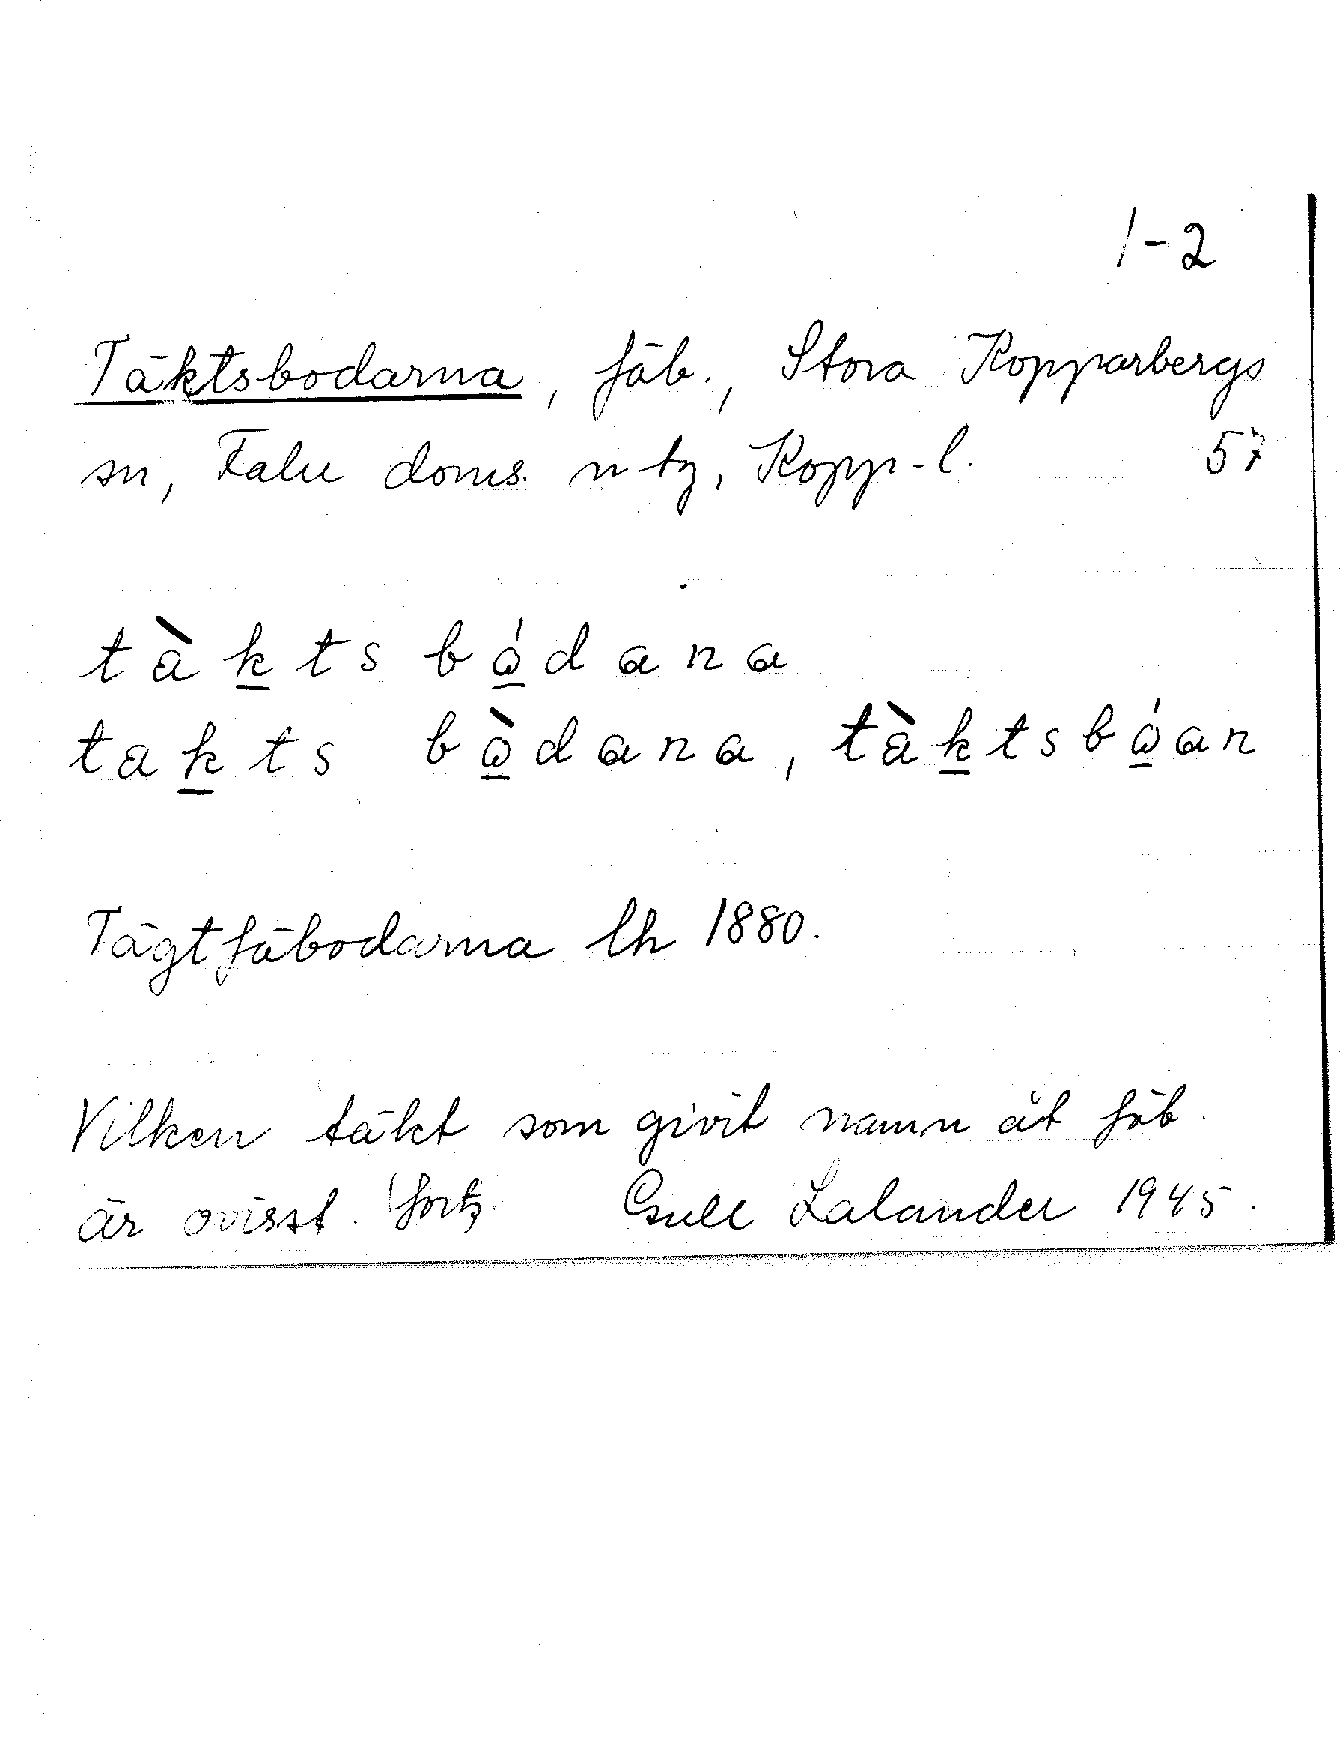 1-2
Täktsbodarna, fäb., Stora Kopparbergs
sn, Falu doms. n tg, Kopp-l. 57
tàk̲tsbó̲dana
tak̲ts bò̲dana, tàk̲tsbó̲an
Tägtfäbodarna lh 1880.
Vilken täkt som givit namn åt fäb.
är ovisst. forts. Gull Lalander 1945.